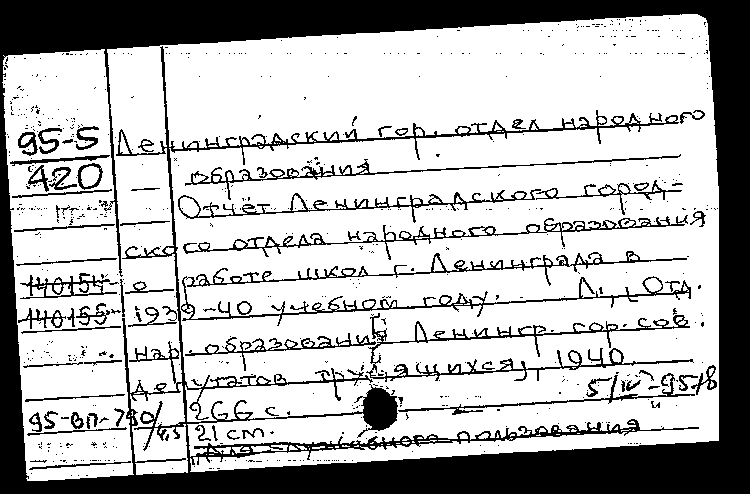 95-5 Ленинградский гор. отдел народного
420 образования
Отчёт Ленинградского город-
ского отдела народного образования
140154 о работе школ г. Ленинграда в
140155 1939-40 учебном году. Л., [Отд.
нар. образования Ленингр. гор. сов.
депутатов трудящихся], 1940.
95-вп-790/ 266 с.
21 см.
"Для служебного пользования"